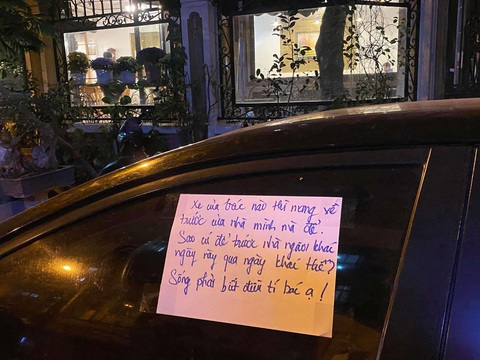 Xe của bác nào thì mang về
trước cửa nhà mình mà để.
Sao cứ để trước nhà người khác
ngày này qua ngày khác thế?
Sống phải biết điều tí bác ạ!